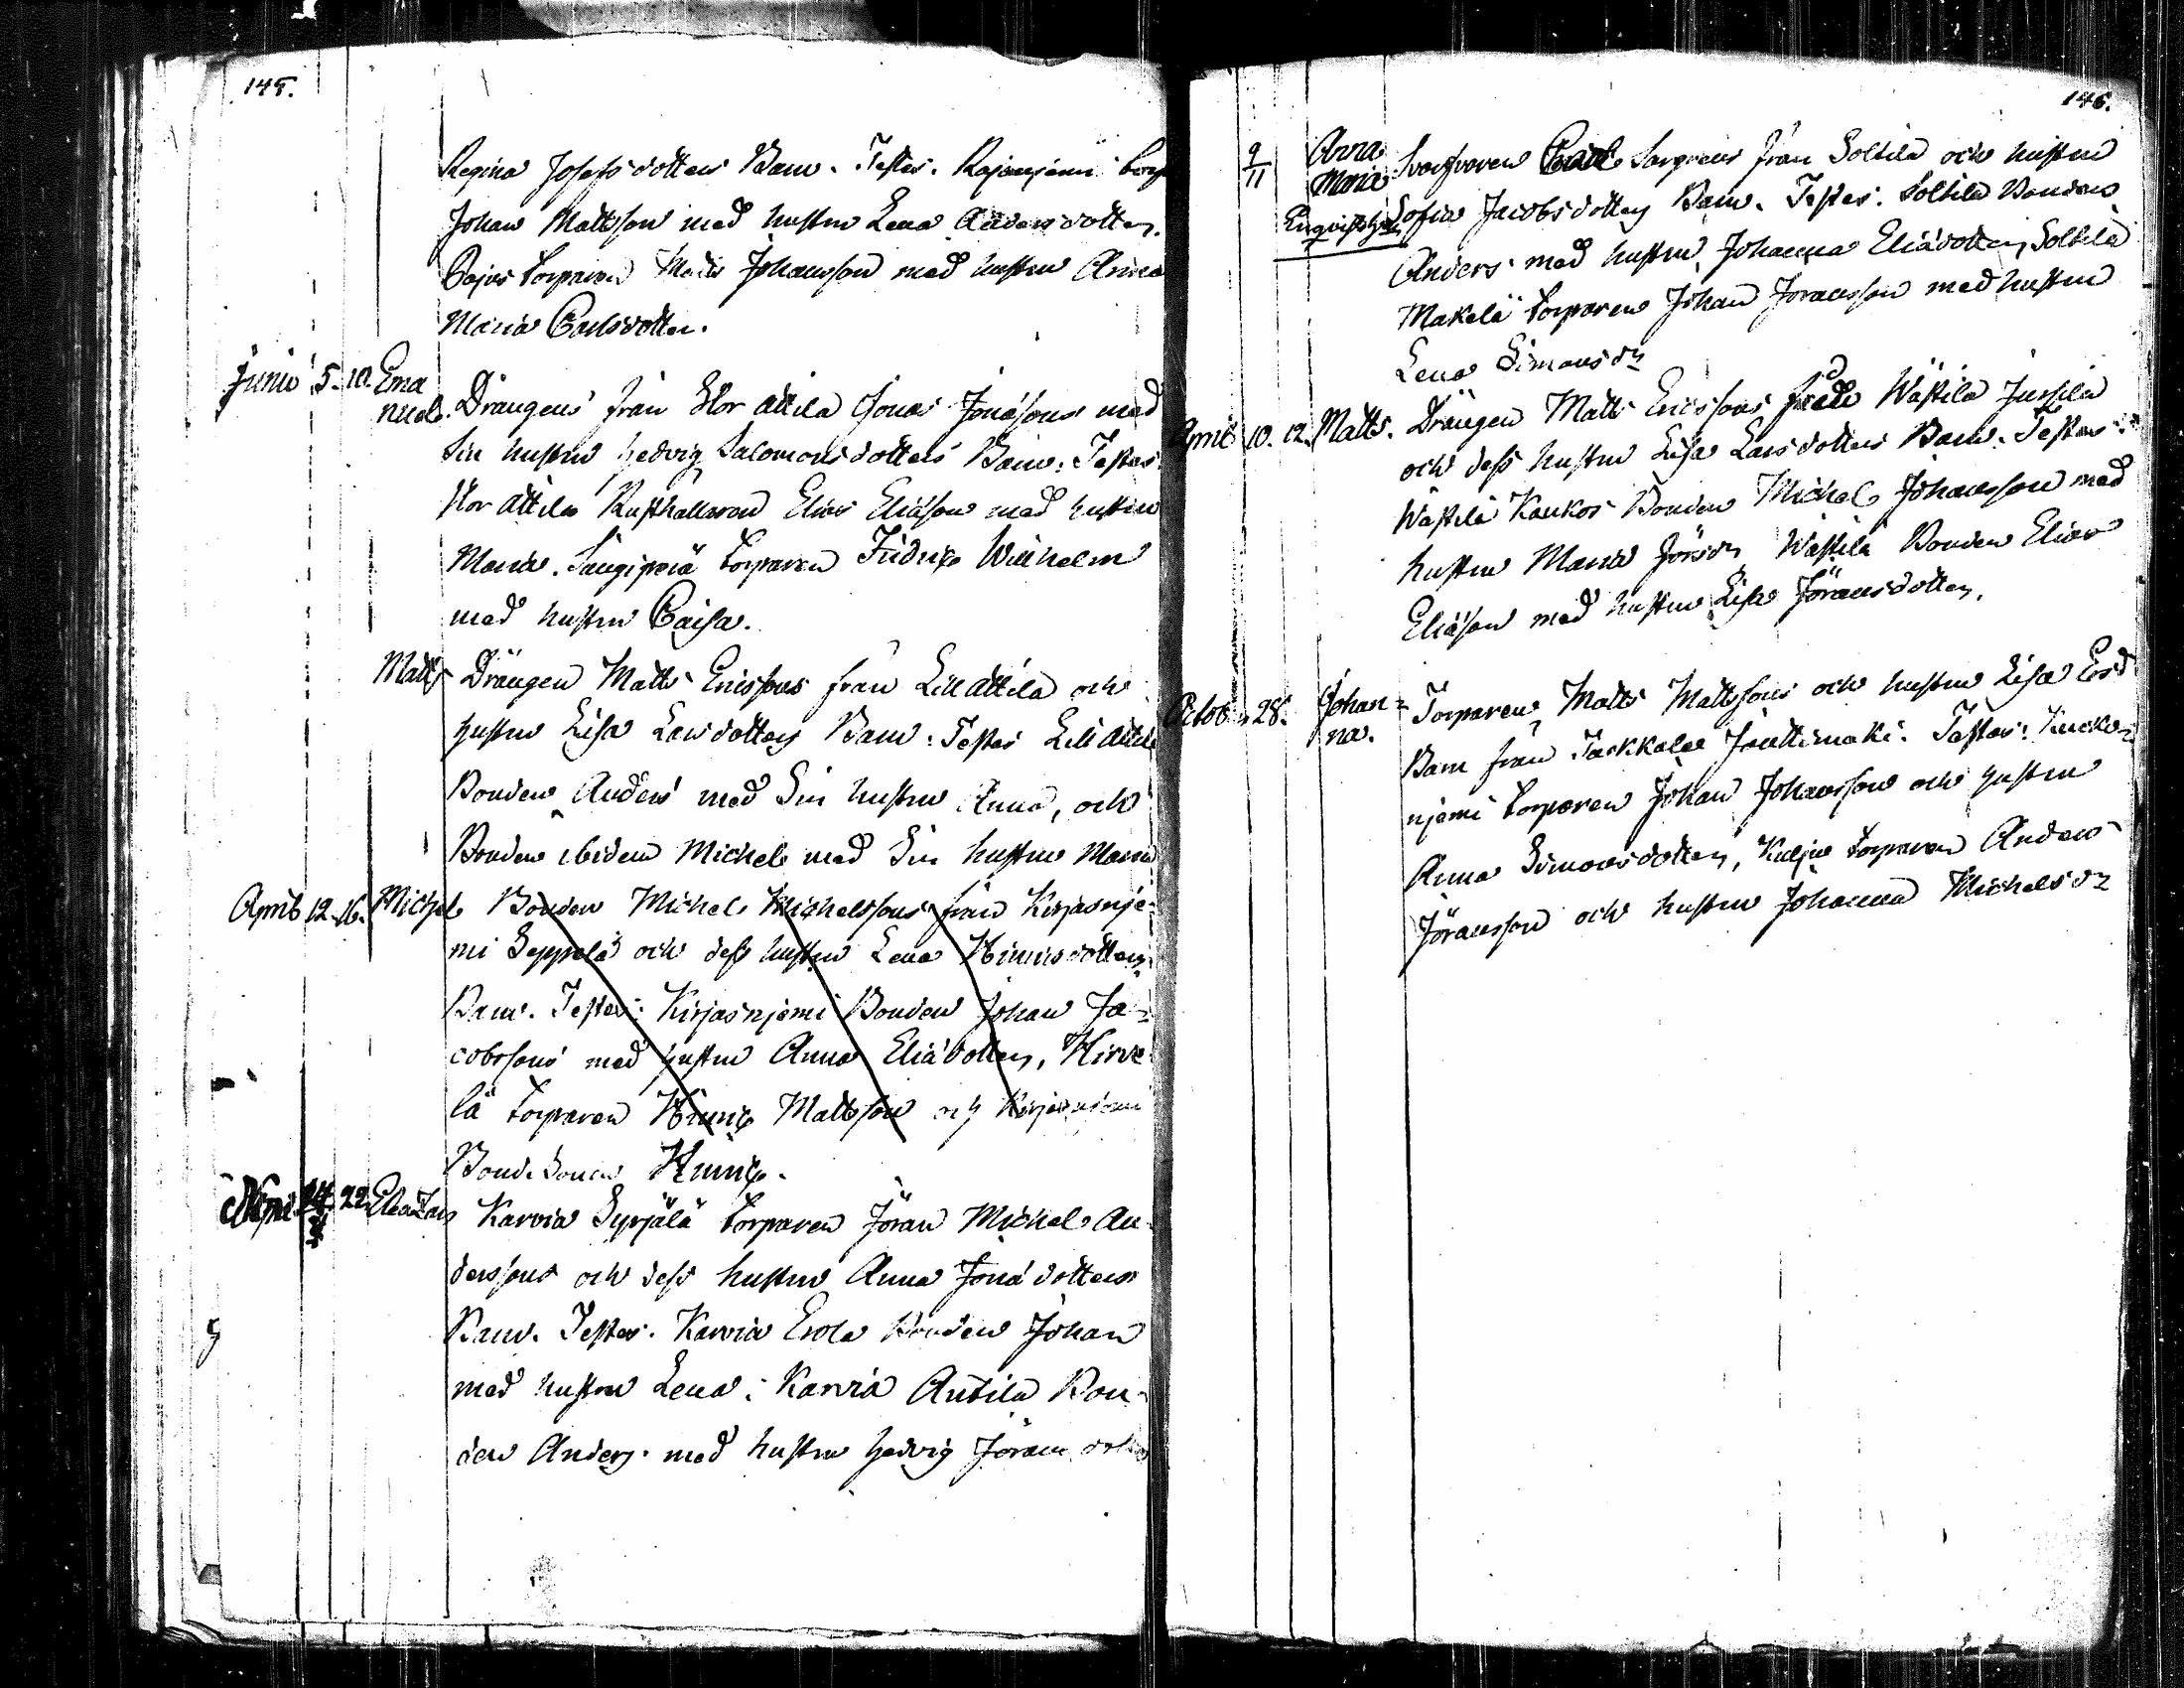 145.
Regina Josephsdotters Barn. Testes. Rajaniemi
Johan Mattsson med hustru Lena Andersdotter.
Pajus Torparen Matts Johansson med hustru Anna
Maria Carlsdotter.
Junii 5. 10. Ema
nuel. Drängens från Stor Attila Jonas Jonæsons med
sin hustru Hedvig Salomonsdotters Barn. Testes
Stor Attila Rusthållaren Elias Eliæson med hustru
Maria. Torparen Fridric Wilhelm
med hustru Caisa.
Matts Drängen Matts Ericssons från Lill Attila och
hustru Lisa Larsdotters Barn. Testes Lill Attila
Bonden Anders med Sin hustru Anna, och
Bonden ibidem Michel med Sin hustru Maria
April 12. 16. Michel Bonden Michel Michelssons från Kirjasnje-
mi Seppelä och dess hustru Lena Hinricsdotters
Barn. Testes: Kirjasnjemi Bonden Johan Ja-
cobssons med hustru Anna Eliædotter, Hirve-
lä Torparen Hinric Mattsson och Kirjasnjemi
Bonde Sonen Hinric.
22. Karvia Syrjälä Torparen Jöran Michel An-
derssons och dess hustru Anna Jonædotters
Barn. Testes. Karvia Erola Bonden Johan
med hustru Lena. Karvia Antila Bon-
den Anders med hustru Hedvig Jöransdotter
146.
9/11 Anna
Maria från Soltila och hustru
Sofia Jacobsdotters Barn. Testes. Soltila Bonden
Anders med hustru Johanna Eliædotter, Soltila
Makelä Torparen Johan Joransson med hustru
Lena Simonsdr
April 10. 12. Matts. Drängen Matts Ericssons från Wästilä Jussila
och dess hustru Lisa Larsdotters Barn. Testes:
Wästilä Kaukos Bonden Michel Johansson med
hustru Maria Jörsdr Wästilä Bonden Elias
Eliæson med hustru Lisa Jöransdotter.
Octob. 28. Johan-
na. Torparen Matts Mattssons och hustru Lisa Ersd
Barn från Jauttimäki. Testes:
njemi Torparen Johan Johansson och hustru
Anna Simonsdotter, Kulju Torparen Anders
Jöransson och hustru Johanna Michelsdr